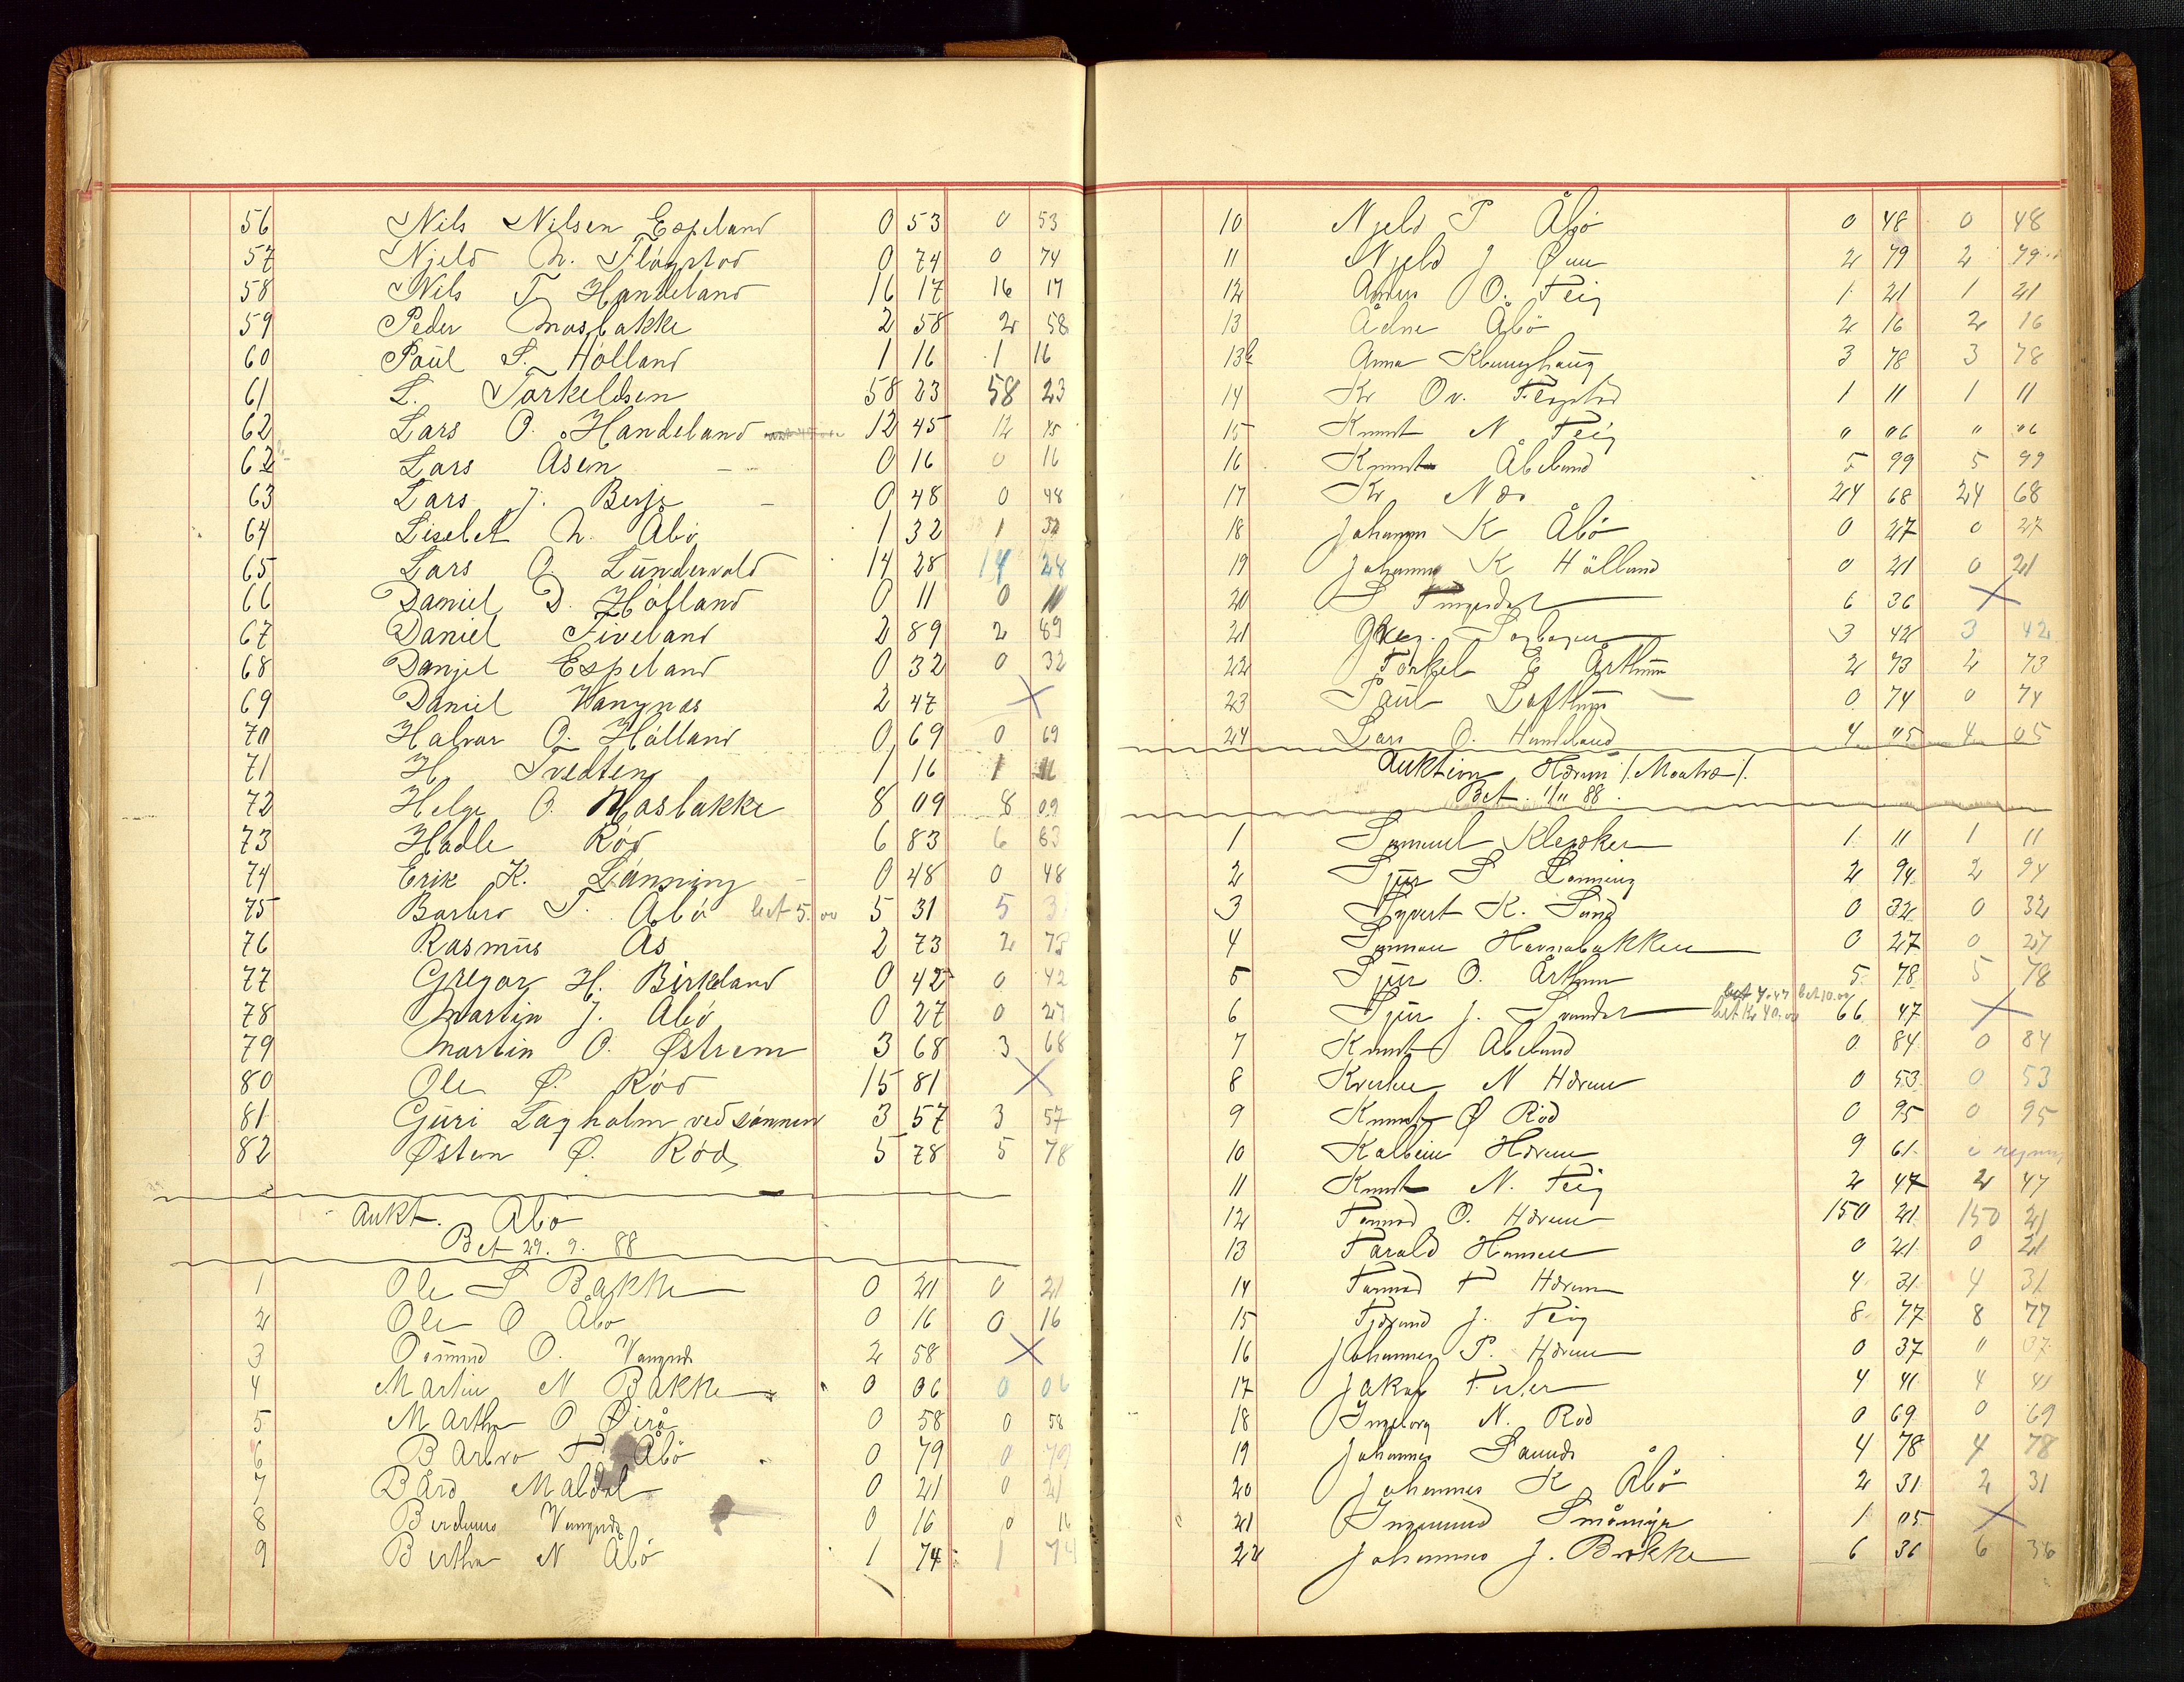 56 Nils Nilsen Espeland 0 53 0 53
57 Njeld N. Fløgstad 0 74 0 74
58 Nils T. Handeland 16 17 16 17
59 Peder Mosbakke 2 58 2 58
60 Paul S. Hølland 1 16 1 16
61 L. Torkeldsen 58 23 58 23
62 Lars O. Handeland 12 45 12 45
62 Lars Åsen 0 16 0 16
63 Lars J. Berje 0 48 0 48
64 Liselet N. Åbø 1 32 1 32
65 Lars O. Lundervold 14 28 14 28
66 Daniel D. Hølland 0 11 0 11
67 Daniel Fiveland 2 89 2 89
68 Danjel Espeland 0 32 0 32
69 Daniel Vangnæs 2 47 X
70 Halvar O. Hølland 0 69 0 69
71 H. Tvedten 1 16 1 16
72 Helge O. Mosbakke 8 09 8 09
73 Hadle Rød 6 83 6 83
74 Erik K. Lønning 0 48 0 48
75 Barbro T. Åbø bet 5.00 5 31 5 31
76 Rasmus Ås 2 73 2 73
77 Gregar H. Birkeland 0 42 0 42
78 Martin J. Åbø 0 27 0 27
79 Martin O. Østrem 3 68 3 68
80 Ole Ø. Rød 15 81 X
81 Guri Lagholm ved sønnen 3 57 3 57
82 Østen Ø. Rød 5 78 5 78
Aukt. Åbø
Bet 29. 9. 88
1 Ole S Bakke 0 21 0 21
2 Ole O Åbø 0 16 0 16
3 Osmund O. Vangnæs 2 58 X
4 Martin N Bakke 0 06 0 06
5 Martha O Øirå 0 58 0 58
6 Barbro T Åbö 0 79 0 79
7 Bård Maldal 0 21 0 21
8 Vangnæs 0 16 0 16
9 Bertha N Åbö 1 74 1 74
10 Njeld P Åbö 0 48 0 48
11 Njeld J Øun 2 79 2 79
12 Anders O. Teig 1 21 1 21
13 Ådne Åbö 2 16 2 16
13b Anna Klunghaug 3 78 3 78
14 Kr Ov. Fløgstad 1 11 1 11
15 Knut N. Teig " 06 " 06
16 Knut Åbeland 5 99 5 99
17 Kr Næs 24 68 24 68
18 Johannes K Åbö 0 27 0 27
19 Johannes K Hölland 0 21 0 21
20 S 6 36 X
21 3 42 3 42
22 Torkel G Årthun 2 73 2 73
23 Paul Lofthus 0 74 0 74
24 Lars O. Handeland 4 05 4 05
Auktion Hærem /. Moutræ /.
Bet. 11/11 88.
1 Samuel Kleisker 1 11 1 11
2 Sjur S Lonning 2 94 2 94
3 Syvert K. Sand 0 32 0 32
4 Havnabakken 0 27 0 27
5 Sjur O. Årthun 5 78 5 78
bet 4.47 bet 10.00
6 Sjur J. Svandal bet Kr 40.00 66 47 X
7 Knut Åbeland 0 84 0 84
8 N Hærem 0 53 0 53
9 Knut Ø Röd 0 95 0 95
10 Kolbein Hærem 9 61
11 Knut N. Teig 2 47 2 47
12 Tormod O. Hærem 150 21 150 21
13 Tarald Hansen 0 21 0 21
14 Tormod T Hærem 4 31 4 31
15 J. Teig 8 77 8 77
16 Johannes P. Hærem 0 37 " 37
17 Jakob 4 41 4 41
18 Ingeborg N. Röd 0 69 0 69
19 Johannes 4 78 4 78
20 Johannes K Åbö 2 31 2 31
21 Ingemund 1 05 X
22 Johannes J. Brekke 6 36 6 36